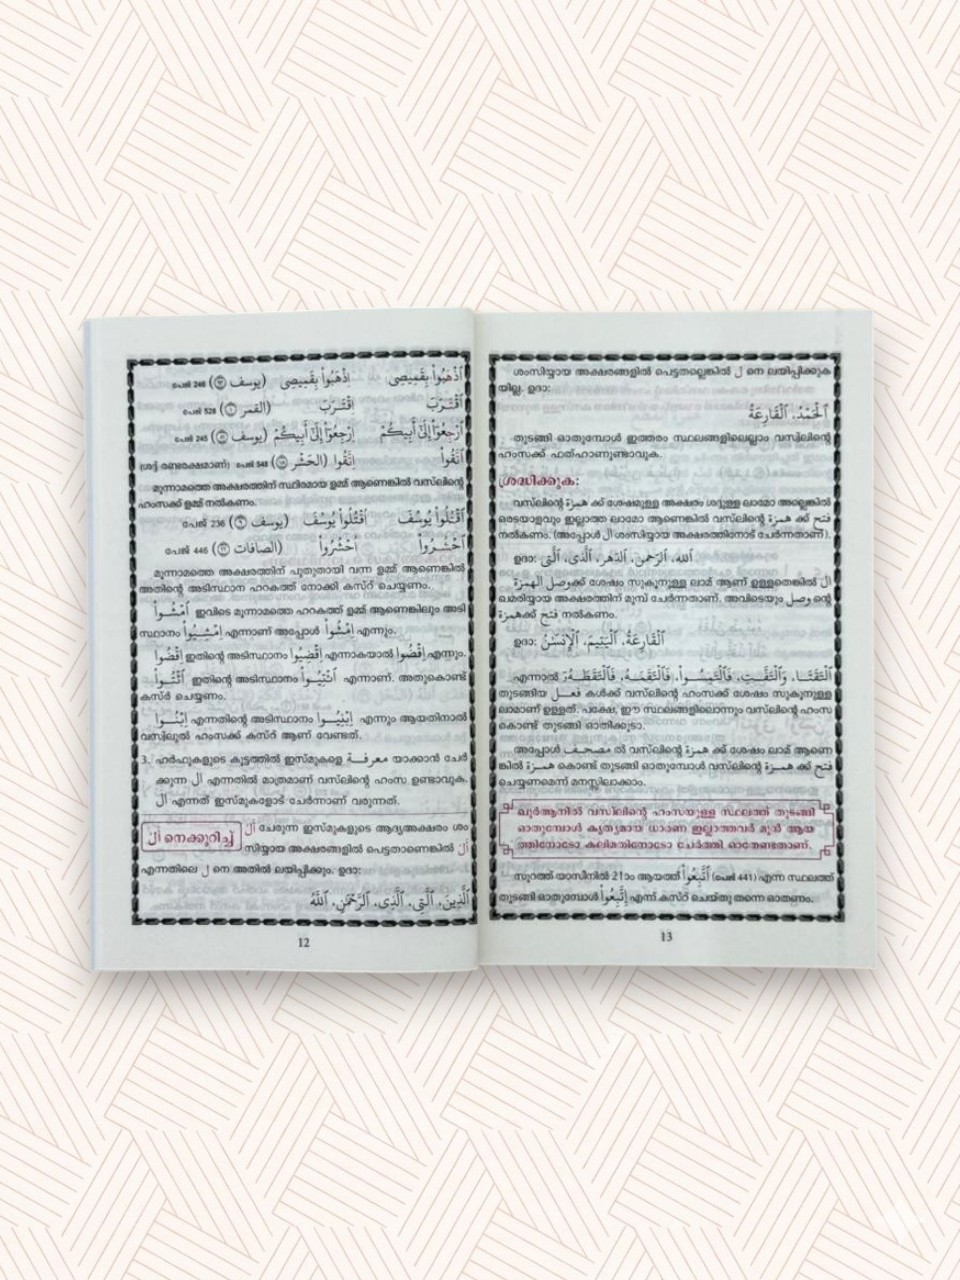 ٱذْهَبُوا۟ بِقَمِيصِى إِذْهَبُوا۟ بِقَمِيصِى (يوسف ٩٣) പേജ് 246
ٱقْتَرَبَ إِقْتَرَبَ (القمر ١) പേജ് 528
ٱرْجِعُوٓا۟ إِلَىٰٓ أَبِيكُمْ إِرْجِعُوٓا۟ إِلَىٰٓ أَبِيكُمْ (يوسف ٨١) പേജ് 245
ٱتَّقُوا۟ إِتَّقُوا (الحَشْر ١٨) പേജ് 548 (ശദ്ദ് രണ്ടക്ഷരമാണ്)
മൂന്നാമത്തെ അക്ഷരത്തിന് സ്ഥിരമായ ഉമ്മ് ആണെങ്കിൽ വസ്‌ലിന്റെ
ഹംസക്ക് ഉമ്മ് നൽകണം.
ٱقْتُلُوا۟ يُوسُفَ أُقْتُلُوا۟ يُوسُفَ (يوسف ٩) പേജ് 236
ٱحْشُرُوا۟ أُحْشُرُوا۟ (الصافات ٢٢) പേജ് 446
മൂന്നാമത്തെ അക്ഷരത്തിന് പുതുതായി വന്ന ഉമ്മ് ആണെങ്കിൽ
അതിന്റെ അടിസ്ഥാന ഹറകത്ത് നോക്കി കസ്റ് ചെയ്യണം.
ٱمْشُوا۟ ഇവിടെ മൂന്നാമത്തെ ഹറകത്ത് ഉമ്മ് ആണെങ്കിലും അടി
സ്ഥാനം إِمْشِيُوا۟ എന്നാണ് അപ്പോൾ إِمْشُوا۟ എന്നും.
إِقْضُوا۟ ഇതിന്റെ അടിസ്ഥാനം إِقْضِيُوا۟ എന്നാകയാൽ إِقْضُوا۟ എന്നും.
ٱئْتُوا۟ ഇതിന്റെ അടിസ്ഥാനം ٱئْتِيُوا۟ എന്നാണ്. അതുകൊണ്ട്
കസ്ർ ചെയ്യണം.
إِبْنُوا۟ എന്നതിന്റെ അടിസ്ഥാനം إِبْنِيُوا۟ എന്നും ആയതിനാൽ
വസ്വ്‌ലുൽ ഹംസക്ക് കസ്റ് ആണ് വേണ്ടത്.
3. ഹർഫുകളുടെ കൂട്ടത്തിൽ ഇസ്മുകളെ معرفة യാക്കാൻ ചേർ
ക്കുന്ന ال എന്നതിൽ മാത്രമാണ് വസ്‌ലിന്റെ ഹംസ ഉണ്ടാവുക.
ال എന്നത് ഇസ്മുകളോട് ചേർന്നാണ് വരുന്നത്.
ال നെക്കുറിച്ച്
ال ചേരുന്ന ഇസ്മുകളുടെ ആദ്യഅക്ഷരം ശം
സിയ്യായ അക്ഷരങ്ങളിൽ പെട്ടതാണെങ്കിൽ ال
എന്നതിലെ ل നെ അതിൽ ലയിപ്പിക്കും. ഉദാ:
ٱلَّذِينَ، ٱلَّتِي، ٱلَّذِى، ٱلرَّحْمَٰنِ، ٱللَّهُ
12
ശംസിയ്യായ അക്ഷരങ്ങളിൽ പെട്ടതല്ലെങ്കിൽ ل നെ ലയിപ്പിക്കുക
യില്ല. ഉദാ:
ٱلْحَمْدُ، ٱلْقَارِعَةُ
തുടങ്ങി ഓതുമ്പോൾ ഇത്തരം സ്ഥലങ്ങളിലെല്ലാം വസ്വ്‌ലിന്റെ
ഹംസക്ക് ഫത്ഹാണുണ്ടാവുക.
ശ്രദ്ധിക്കുക:
വസ്‌ലിന്റെ همزة ക്ക് ശേഷമുള്ള അക്ഷരം ശദ്ദുള്ള ലാമോ അല്ലെങ്കിൽ
ഒരടയാളവും ഇല്ലാത്ത ലാമോ ആണെങ്കിൽ വസ്‌ലിന്റെ همزة ക്ക് فتح
നൽകണം. (അപ്പോൾ ال ശംസിയ്യായ അക്ഷരത്തിനോട് ചേർന്നതാണ്).
ഉദാ: الله، ٱلرَّحمن، ٱلدَّهر، ٱلَّذى، ٱلَّتى
ال ക്ക് ശേഷം സുകൂനുള്ള ലാമ് ആണ് ഉള്ളതെങ്കിൽ وصل الهمزة
ഖമരിയ്യായ അക്ഷരത്തിന് മുമ്പ് ചേർന്നതാണ്. അവിടെയും وصل ന്റെ
همزة ക്ക് فتح നൽകണം.
ഉദാ: ٱلْقَارِعَةُ، ٱلْيَتِيمَ، ٱلْإِنْسَٰنُ
എന്നാൽ ٱلْتَقَتَا، وَٱلْتَفَّتِ، فَٱلْتَمِسُوا۟، فَٱلْتَقَمَهُ، فَٱلْتَقَطَهُۥٓ
തുടങ്ങിയ فعل കൾക്ക് വസ്‌ലിന്റെ ഹംസക്ക് ശേഷം സുകൂനുള്ള
ലാമാണ് ഉള്ളത്. പക്ഷേ, ഈ സ്ഥലങ്ങളിലൊന്നും വസ്‌ലിന്റെ ഹംസ
കൊണ്ട് തുടങ്ങി ഓതിക്കൂടാ.
അപ്പോൾ مصحف ൽ വസ്‌ലിന്റെ همزة ക്ക് ശേഷം ലാമ് ആണെ
ങ്കിൽ همزة കൊണ്ട് തുടങ്ങി ഓതുമ്പോൾ വസ്‌ലിന്റെ همزة ക്ക് فتح
ചെയ്യണമെന്ന് മനസ്സിലാക്കാം.
ഖുർആനിൽ വസ്‌ലിന്റെ ഹംസയുള്ള സ്ഥലത്ത് തുടങ്ങി
ഓതുമ്പോൾ കൃത്യമായ ധാരണ ഇല്ലാത്തവർ മുൻ ആയ
ത്തിനോടോ കലിമതിനോടോ ചേർത്തി ഓതേണ്ടതാണ്.
സൂറത്ത് യാസീനിൽ 21ാം ആയത്ത് ٱتَّبِعُوا۟ (പേജ് 441) എന്ന സ്ഥലത്ത്
തുടങ്ങി ഓതുമ്പോൾ إِتَّبِعُوا۟ എന്ന് കസ്റ് ചെയ്തു തന്നെ ഓതണം.
13